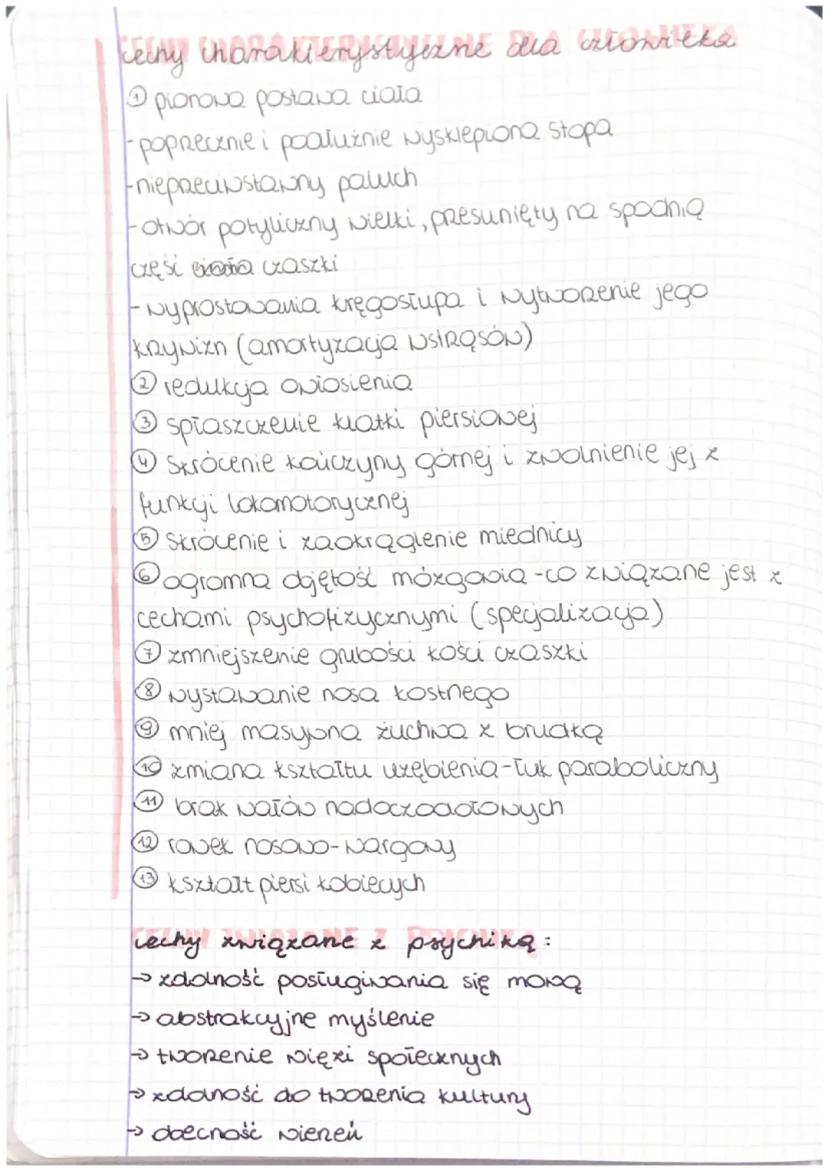 Cechy charakterystyczne dla człowieka
① pionowa postawa ciała
- poprzecznie i podłużnie wysklepiona stopa
- nieprzeciwstawny paluch
- otwór potyliczny wielki, przesunięty na spodnią
część czaszki
- wyprostowania kręgosłupa i wytworzenie jego
krzywizn (amortyzacja wstrząsów)
② redukcja owłosienia
③ spłaszczenie klatki piersiowej
④ Skrócenie kończyny górnej i zwolnienie jej z
funkcji lokomotorycznej
⑤ Skrócenie i zaokrąglenie miednicy
⑥ ogromna objętość mózgowia - co związane jest z
cechami psychofizycznymi (specjalizacja)
⑦ zmniejszenie grubości kości czaszki
⑧ wystawanie nosa kostnego
⑨ mniej masywna żuchwa z bródką
⑩ zmiana kształtu uzębienia - łuk paraboliczny
⑪ brak wałów nadoczodołowych
⑫ rowek nosowo-wargowy
⑬ kształt piersi kobiecych
Cechy związane z psychiką:
→ zdolność posługiwania się mową
→ abstrakcyjne myślenie
→ tworzenie więzi społecznych
→ zdolność do tworzenia kultury
→ obecność wierzeń